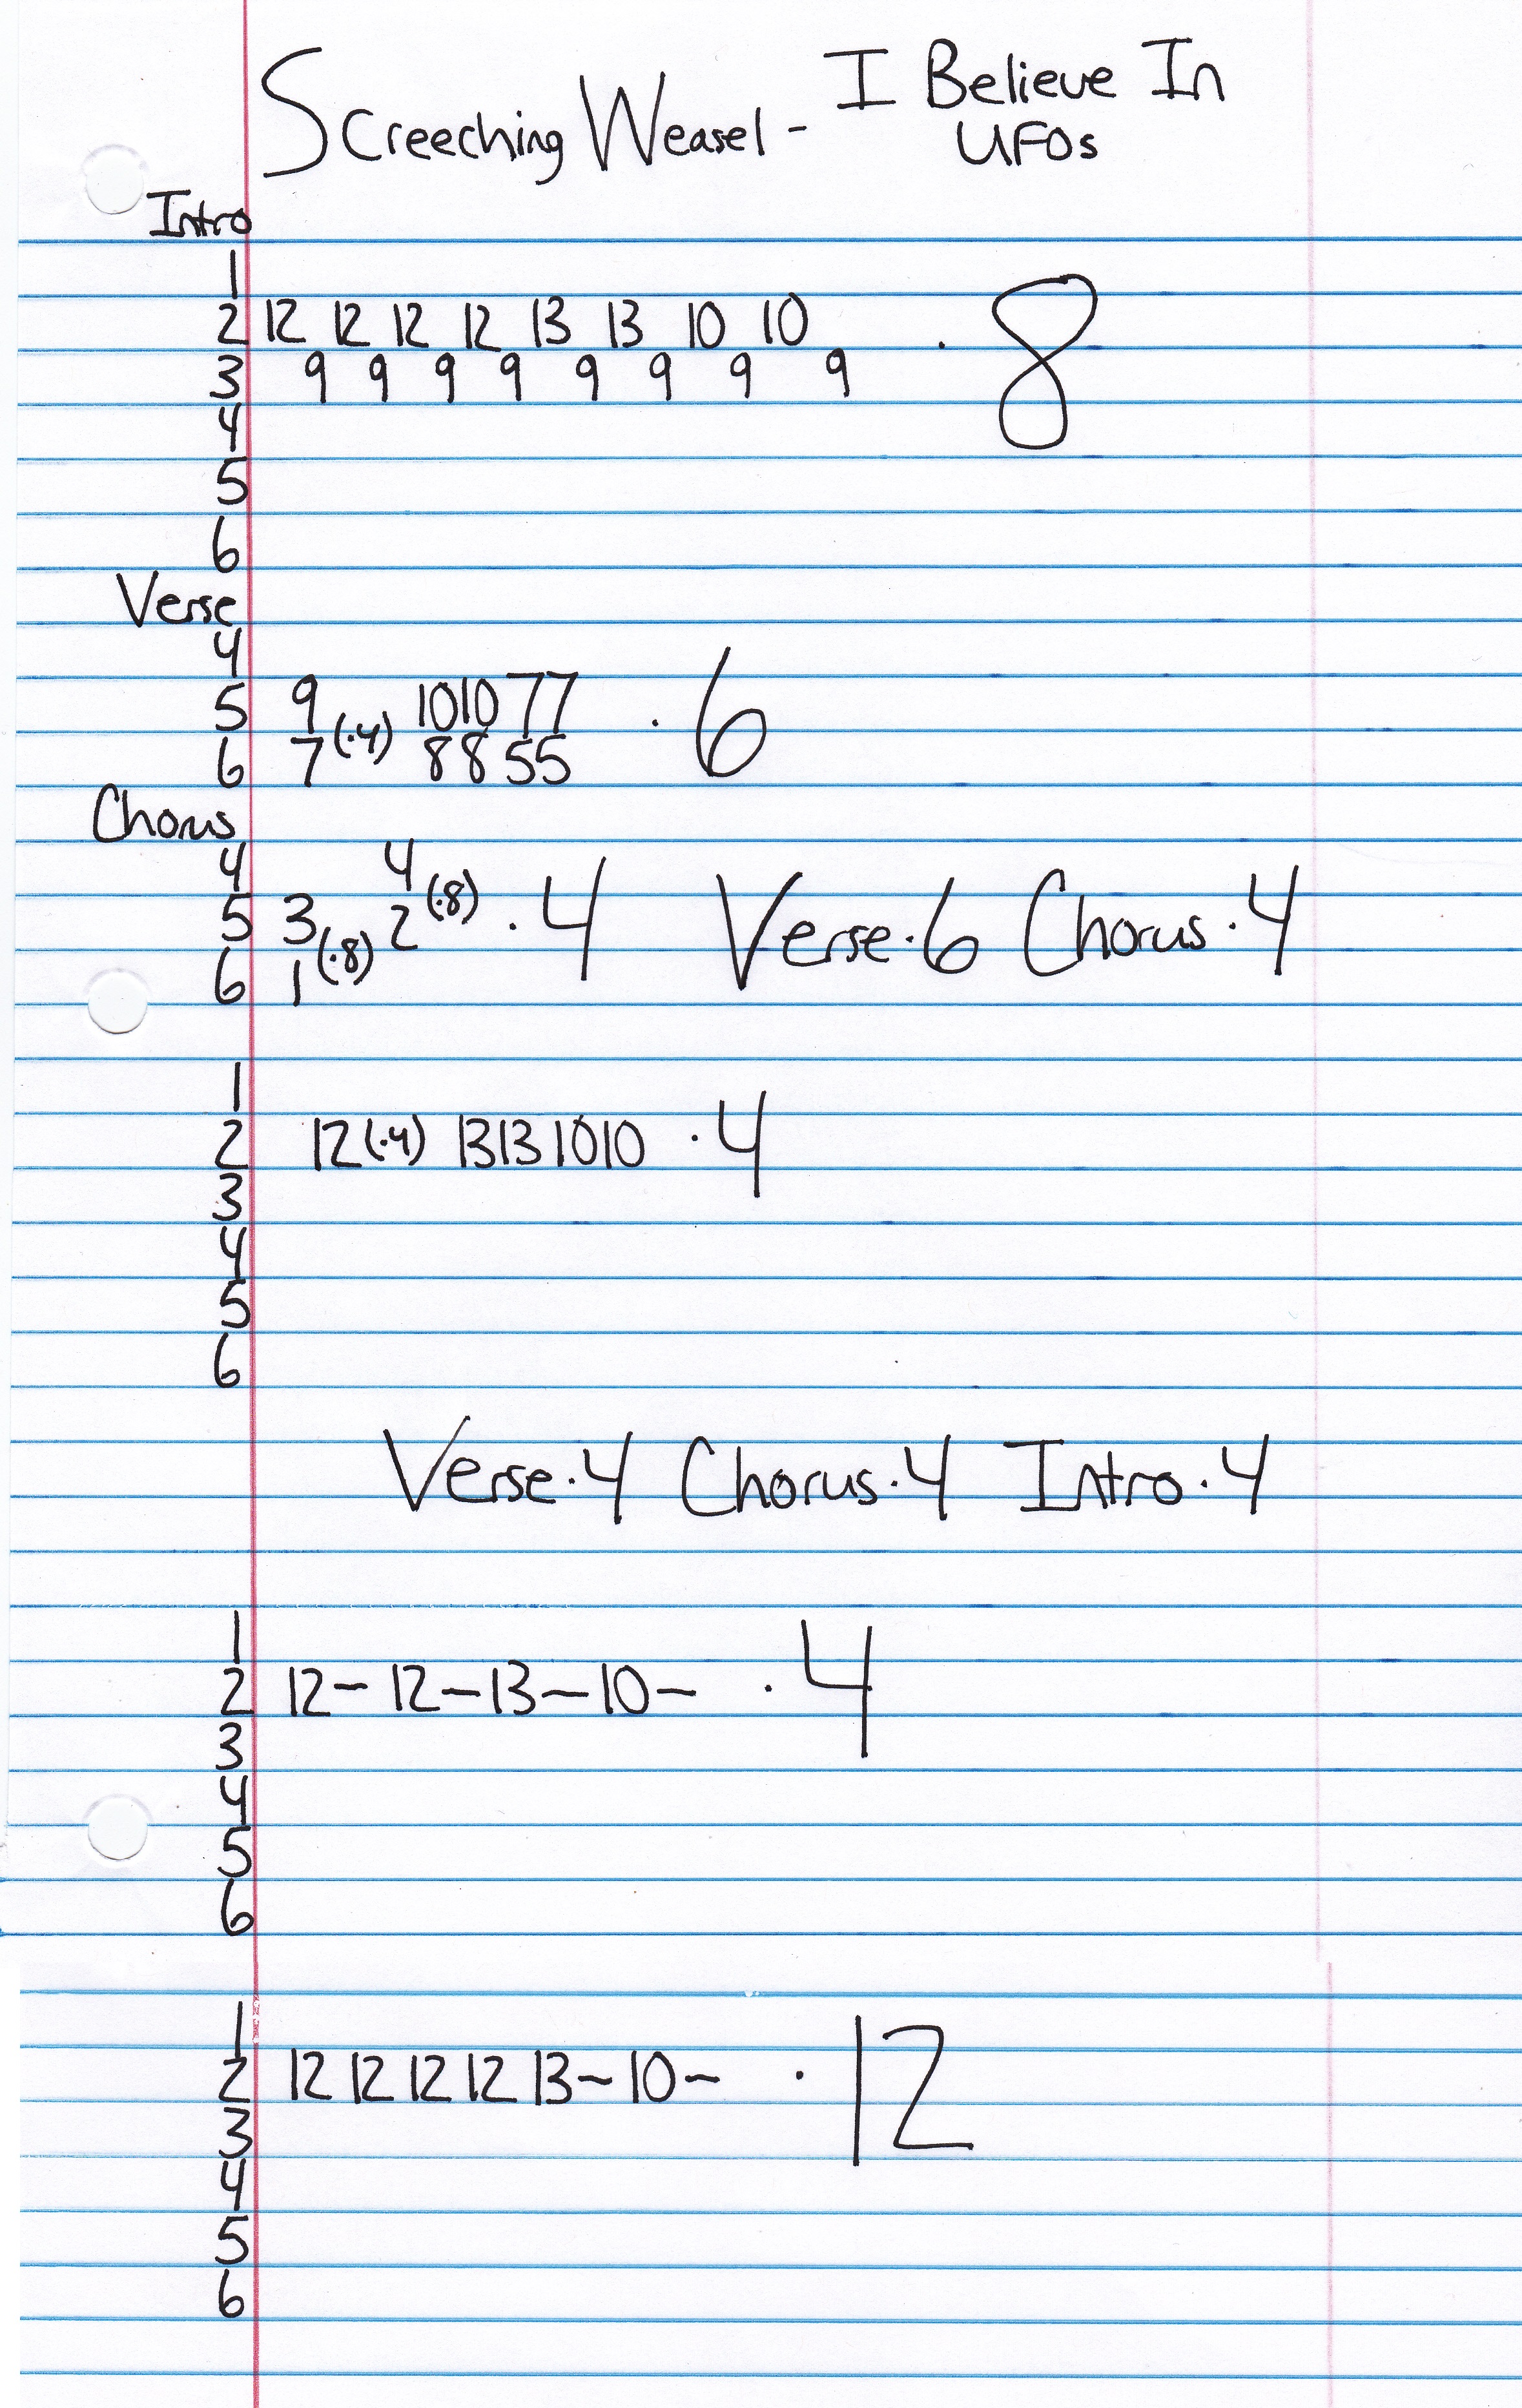 Screeching Weasel - I Believe In
UFOs
Intro
1
2 12 12 12 12 13 13 10 10 · 8
3 9 9 9 9 9 9 9 9
4
5
6
Verse
4
5 9 (·4) 10 10 7 7 · 6
6 7 8 8 5 5
Chorus
4 4
5 3 (·8) 2 (·8) · 4 Verse · 6 Chorus · 4
6 1
1
2 12 (·4) 13 13 10 10 · 4
3
4
5
6
Verse · 4 Chorus · 4 Intro · 4
1
2 12 ~ 12 ~ 13 ~ 10 ~ · 4
3
4
5
6
1
2 12 12 12 12 13 ~ 10 ~ · 12
3
4
5
6